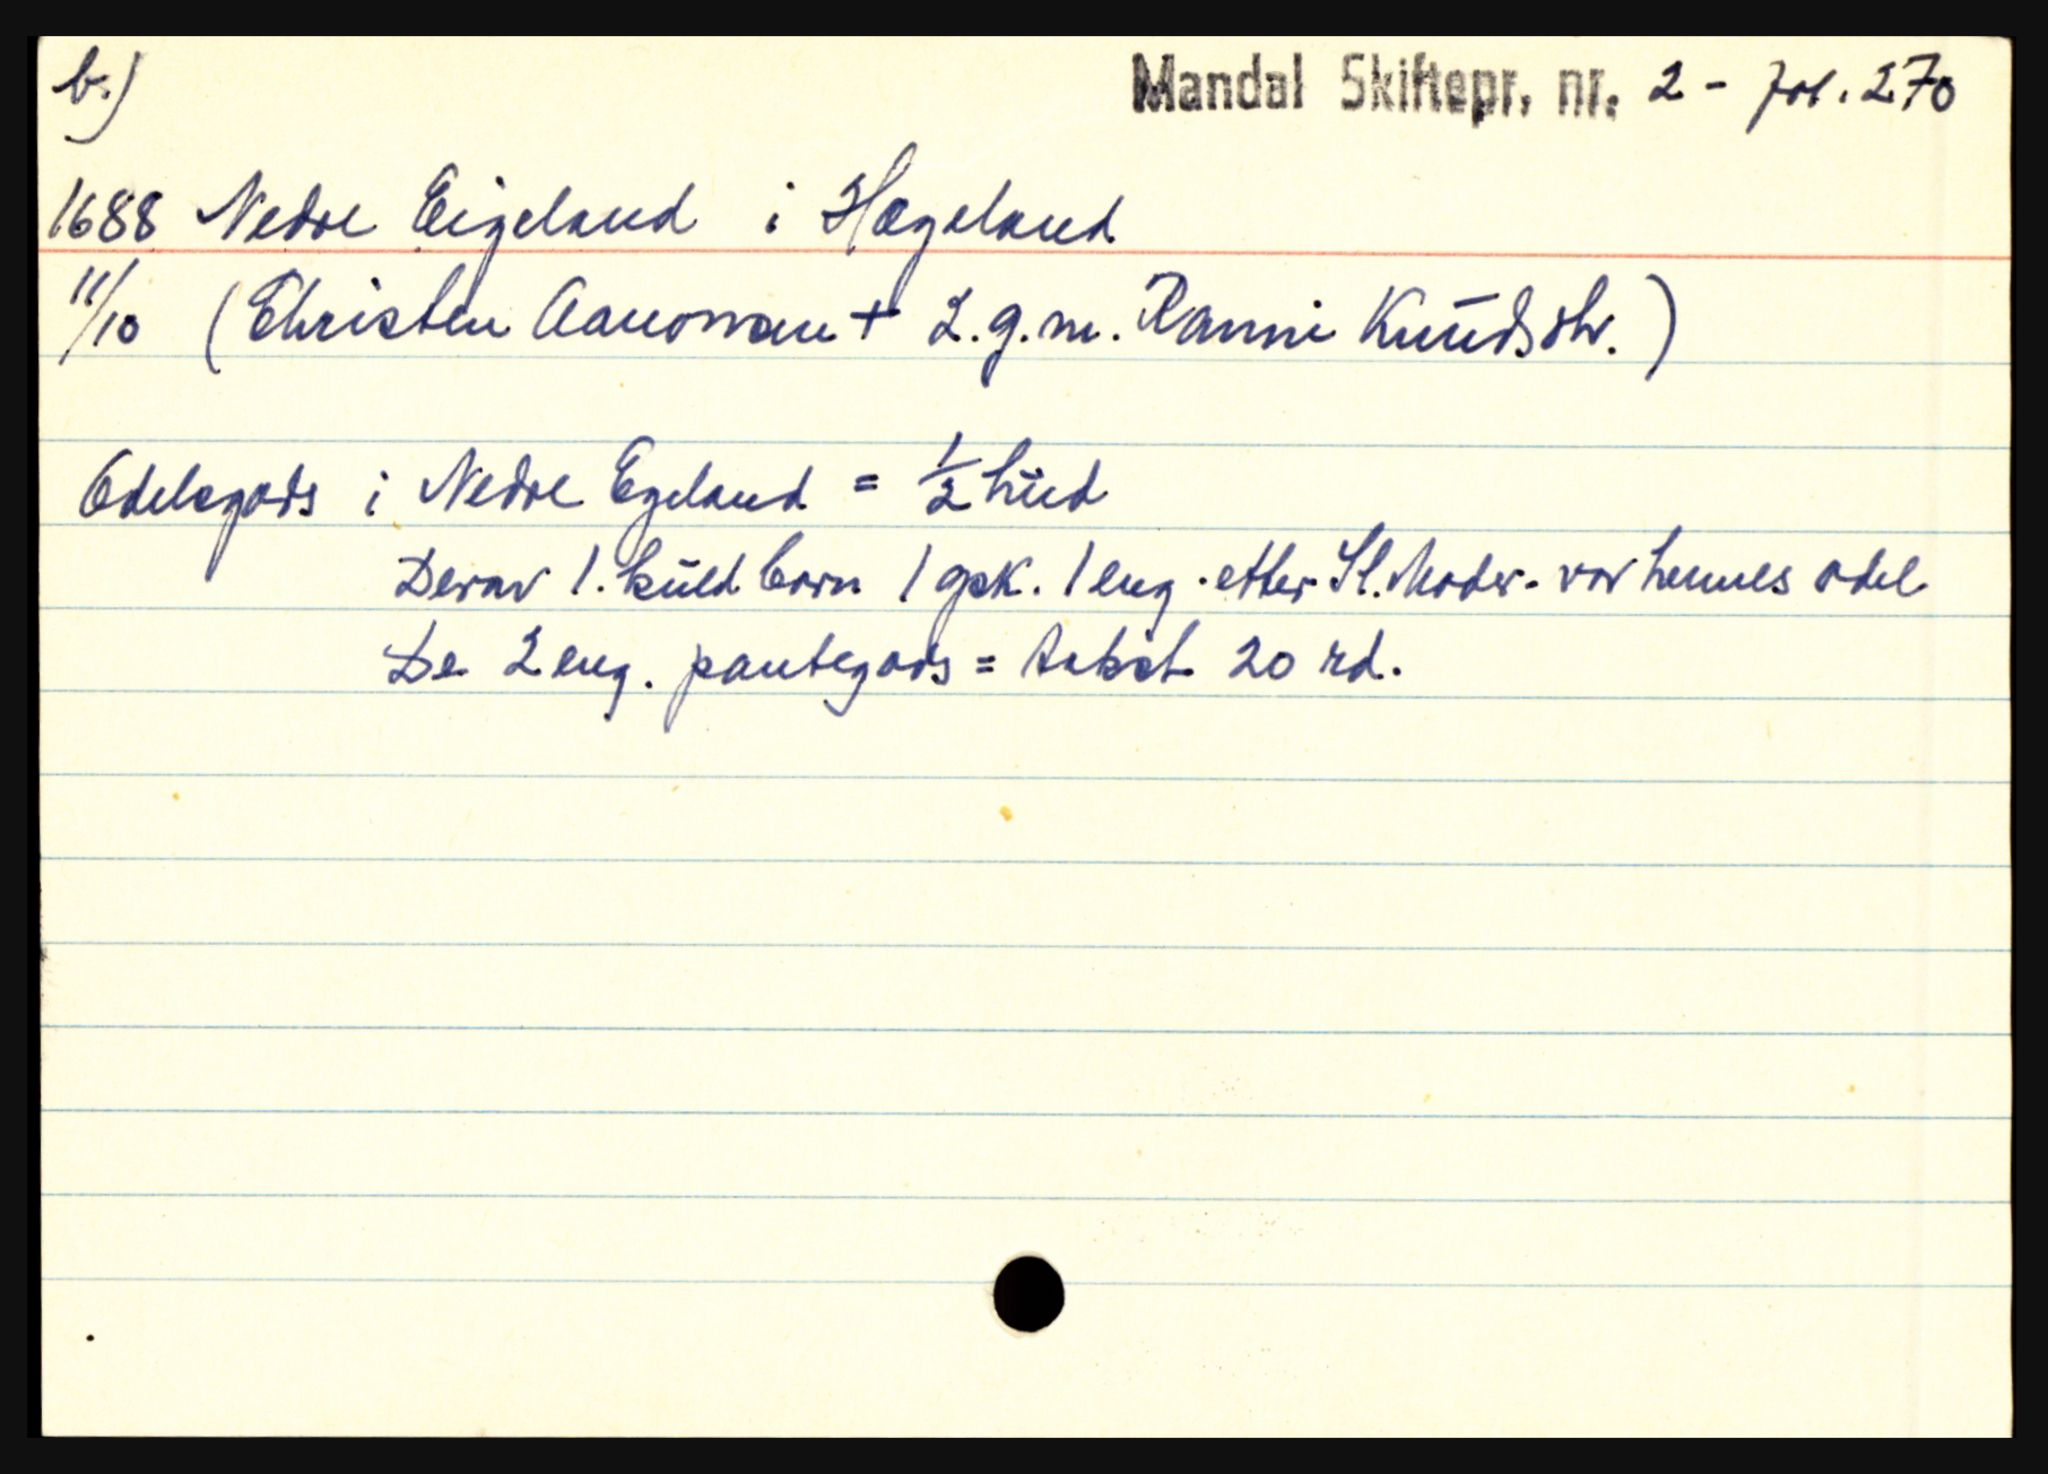 b.) Mandal Skiftepr. nr. 2 - fol. 270
1688 Nedre Eigeland i Hægeland
11/10 (Christen Aanonsen + 2. g. m. Ranni Knudsdtr.)
Odelsgods i Nedre Egeland = 1/2 hud
Derav 1. kuld born 1 gsk. 1 eng. etter Sl. Moder - var hennes odel
De 2 eng. pantegods = takst 20 rd.